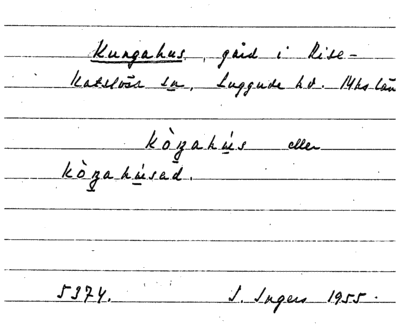 Kungahus, gård i Rise-
Katslösa sn, Luggude hd. Mhs län
kòŋahús eller
kòŋahúsad.
5374. I. Ingers 1955.